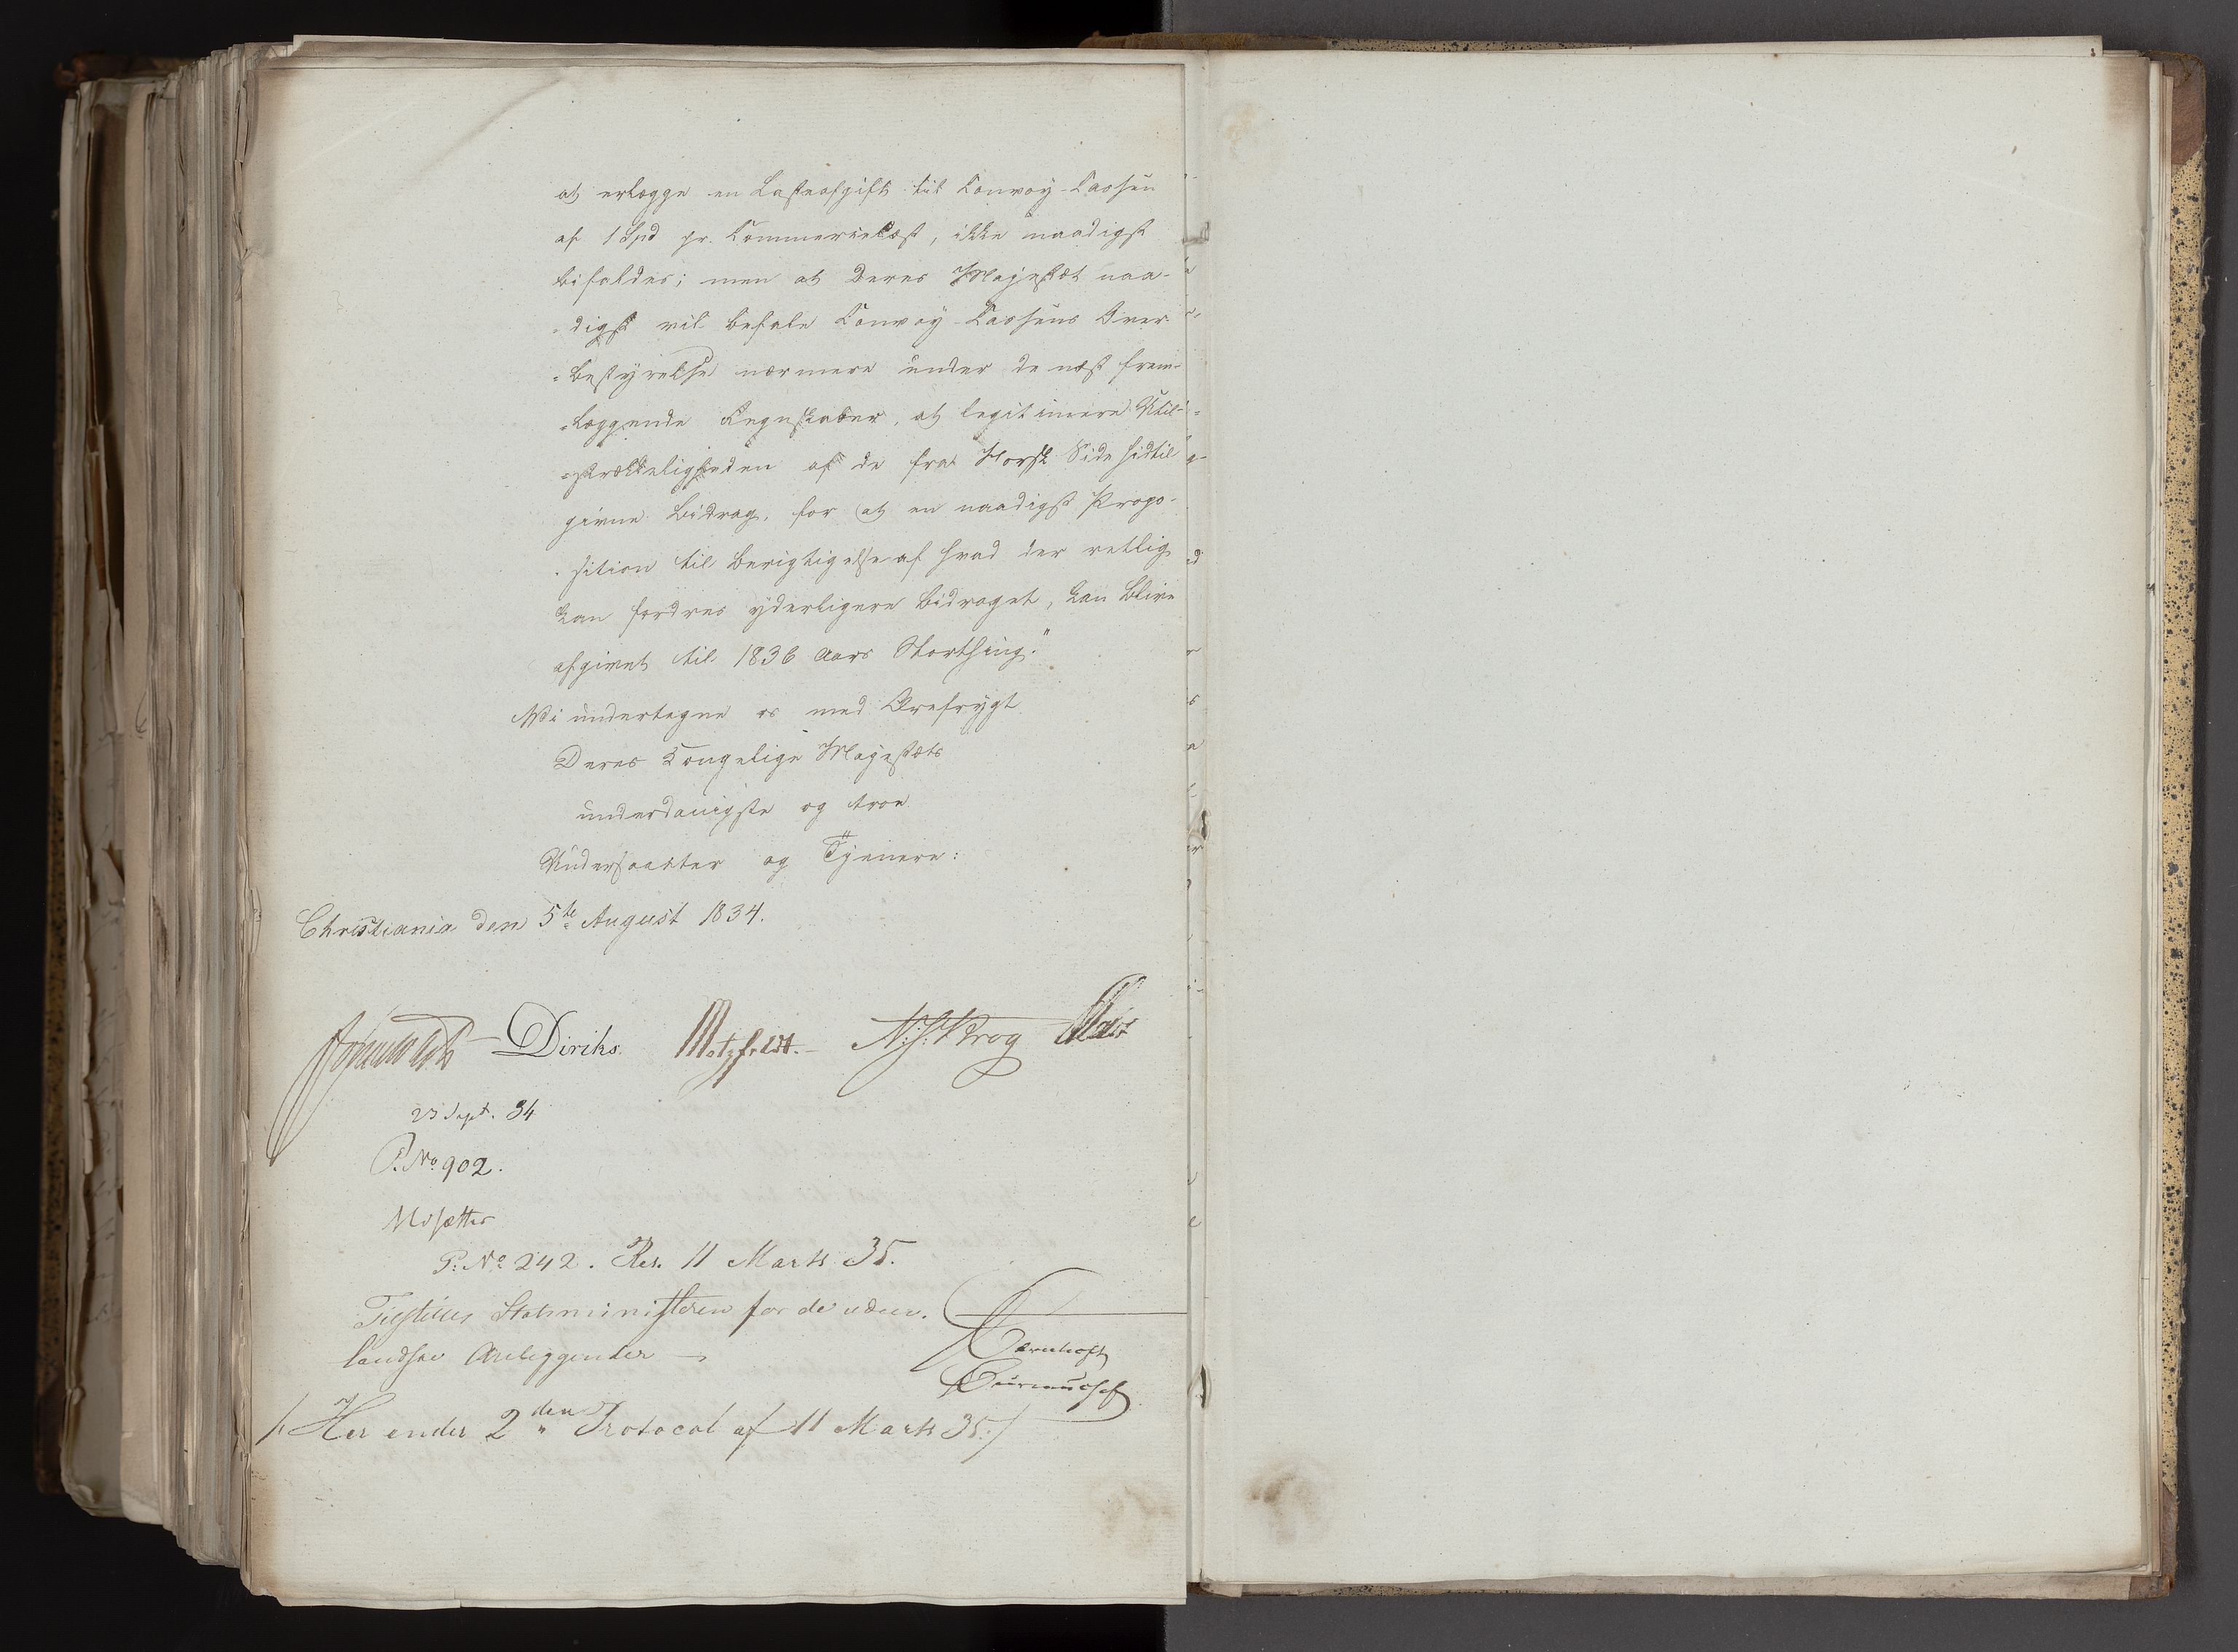 at erlægge en Læsteafgift til Convoy-Cassen
af 1 Spd pr. Commercelæst, ikke naadigst
bifaldes; men at Deres Majestæt naa-
digst vil befale Convoy-Cassens Over-
=bestyrelse nærmere under de næst frem-
=læggende Regnskaber, at legitimere Util-
=strækkeligheden af de fra Norsk Side hidtil
givne Bidrag, for at en naadigst Propo-
sition til Berigtigelse af hvad der retlig
kan fordres yderligere bidraget, kan blive
afgivet til 1836 Aars Storthing."
Vi undertegne os med Ærefrygt
Deres Kongelige Majestæts
underdanigste og troe
Undersaatter og Tjenere:
Christiania den 5te August 1834.
Diriks. Motzfeldt. N:J: Krog
23 Sept. 34
P. No 902.
Udsættes
P. No 242. Res. 11 Marts 35.
Statsministeren for de uden-
landske Anliggender
/: Her ender 2den Protocol af 11 Marts 35:/